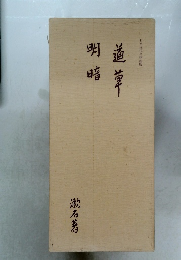 道草
明暗
漱石著